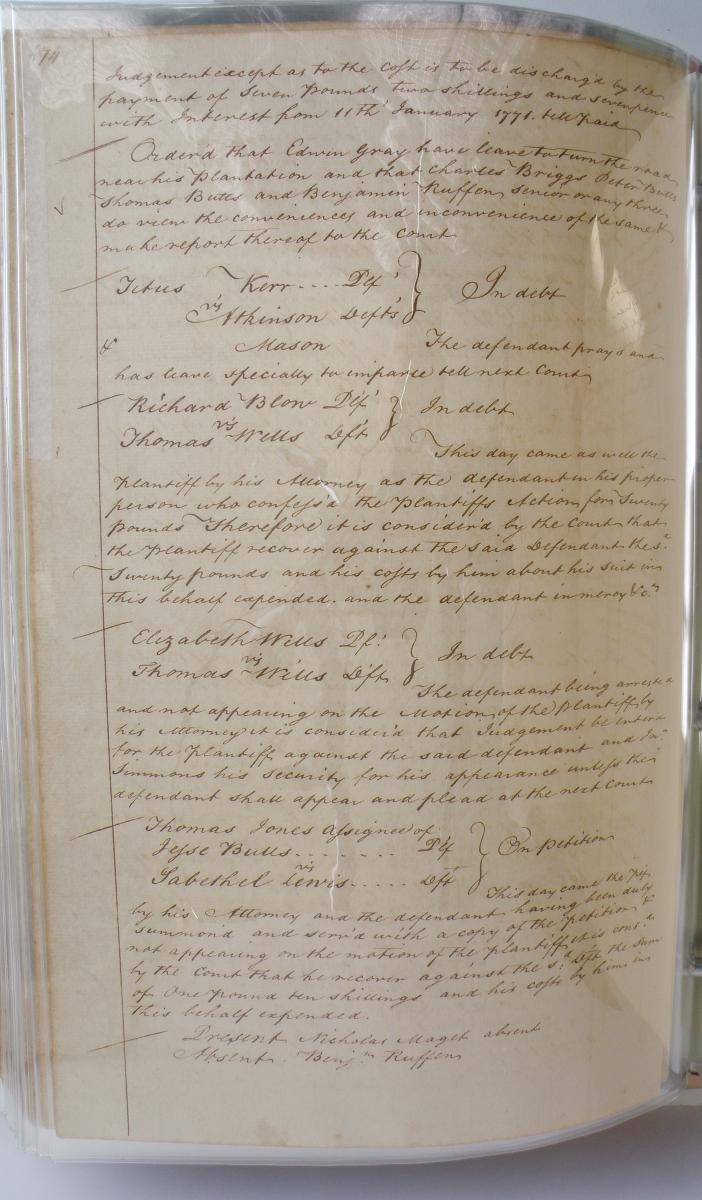 74
Judgement except as to the cost is to be discharg'd by the
payment of Seven Pounds two shillings and sevenpence
with Interest from 11th January 1771. till paid
Order'd that Edwin Gray have leave to turn the road
near his Plantation and that Charles Briggs Peter Butts
Thomas Butts and Benjamin Ruffen senior or any three
do view the conveniences and inconvenience of the same &
make report thereof to the Court
Kerr .... Plf
vs
Atkinson Defts
In debt
& Mason
The defendant prays and
has leave specially to imparle till next Court
Richard Blow Plf
vs
Thomas Wells Deft
In debt
This day came as well the
Plantiff by his Attorney as the defendant in his proper
person who confess'd the Plantiffs Action for Twenty
pounds Therefore it is consider'd by the Court that
the Plantiff recover against the said Defendant the sd
Twenty pounds and his costs by him about his suit in
this behalf expended. and the defendant in mercy &c.
Elizabeth Wills Plf
vs
Thomas Wills Deft
In debt
The defendant being arrested
and not appearing on the Motion of the Plantiff by
his Attorney it is consider'd that Judgement be enter'd
for the Plantiff against the said defendant and
Simmons his security for his appearance unless the
defendant shall appear and plead at the next Court
Thomas Jones assignee of
Jesse Butts ....... Plf
vs
Sabethel Lewis ..... Deft
On Petition
This day came the Plf
by his Attorney and the defendant having been duly
summond and serv'd with a copy of the petition &
not appearing on the motion of the Plantiff it is cons.d
by the Court that he recover against the sd Deft the Sum
of One pound ten shillings and his costs by him in
this behalf expended.
Present Nicholas Maget absent
Absent Benjn Ruffen